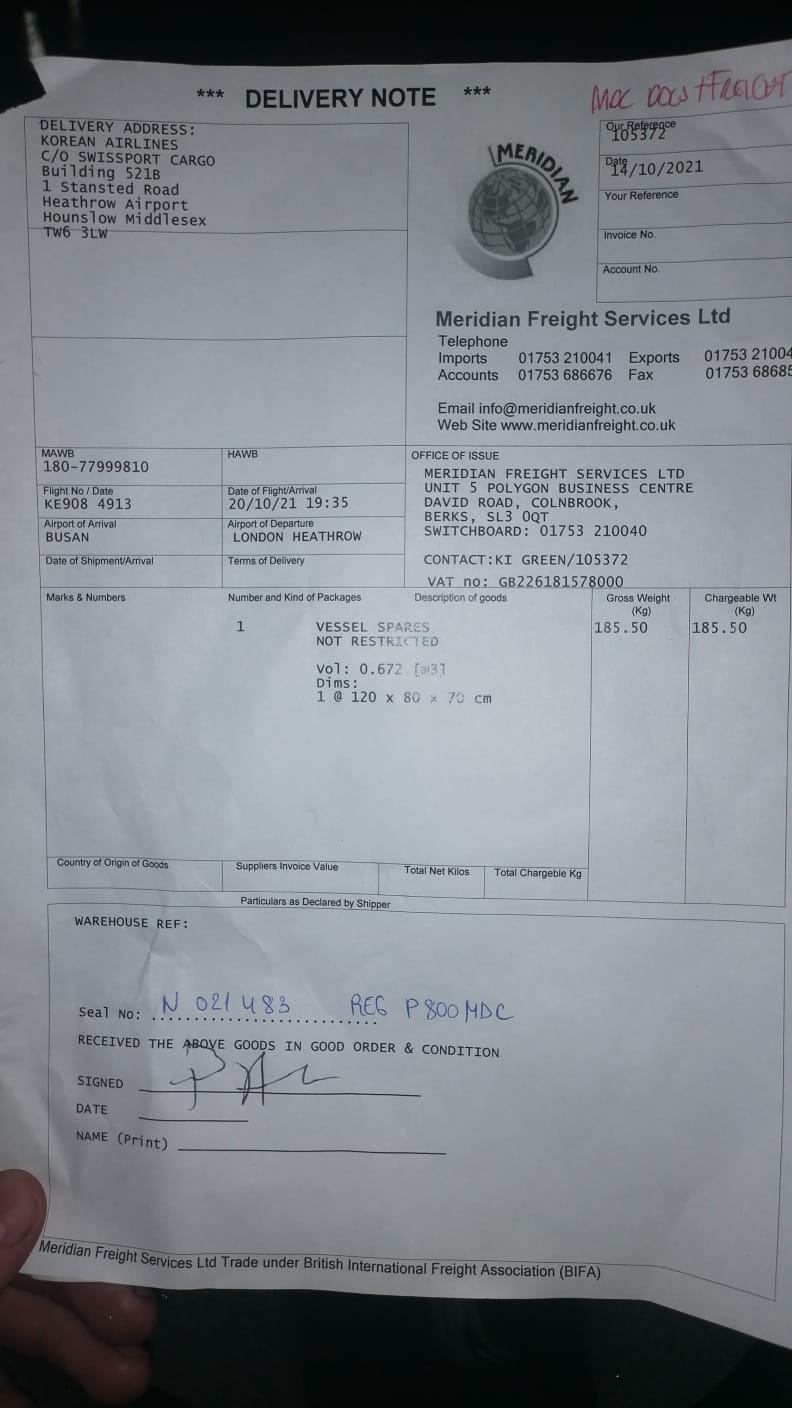 *** DELIVERY NOTE ***
MDC DOCS + FREIGHT
DELIVERY ADDRESS:
KOREAN AIRLINES
C/O SWISSPORT CARGO
Building 521B
1 Stansted Road
Heathrow Airport
Hounslow Middlesex
TW6 3LW
MERIDIAN
Our Reference
105372
Date
14/10/2021
Your Reference
Invoice No.
Account No.
Meridian Freight Services Ltd
Telephone
Imports 01753 210041 Exports 01753 21004
Accounts 01753 686676 Fax 01753 68685
Email info@meridianfreight.co.uk
Web Site www.meridianfreight.co.uk
MAWB
180-77999810
HAWB
Flight No / Date
KE908 4913
Date of Flight/Arrival
20/10/21 19:35
Airport of Arrival
BUSAN
Airport of Departure
LONDON HEATHROW
Date of Shipment/Arrival
Terms of Delivery
OFFICE OF ISSUE
MERIDIAN FREIGHT SERVICES LTD
UNIT 5 POLYGON BUSINESS CENTRE
DAVID ROAD, COLNBROOK,
BERKS, SL3 0QT
SWITCHBOARD: 01753 210040
CONTACT:KI GREEN/105372
VAT no: GB226181578000
Marks & Numbers
Number and Kind of Packages
Description of goods
Gross Weight
(Kg)
Chargeable Wt
(Kg)
1 VESSEL SPARES 185.50 185.50
NOT RESTRICTED
Vol: 0.672 [m3]
Dims:
1 @ 120 x 80 x 70 cm
Country of Origin of Goods
Suppliers Invoice Value
Total Net Kilos
Total Chargeble Kg
Particulars as Declared by Shipper
WAREHOUSE REF:
Seal No: N 021483 REG P800MDC
RECEIVED THE ABOVE GOODS IN GOOD ORDER & CONDITION
SIGNED
DATE
NAME (Print)
Meridian Freight Services Ltd Trade under British International Freight Association (BIFA)